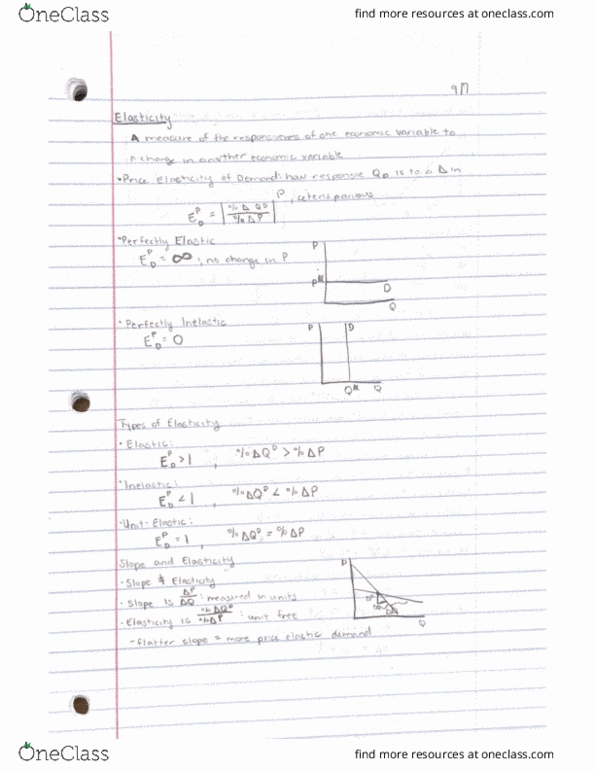 OneClass
find more resources at oneclass.com
9/7
Elasticity
A measure of the responsiveness of one economic variable to
a change in another economic variable
•Price Elasticity of Demand: how responsive QD is to a Δ in
P, ceteris paribus
E_D^P = |%ΔQD / %ΔP|
•Perfectly Elastic
E_D^P = ∞ ; no change in P
P
P*
D
Q
•Perfectly Inelastic
E_D^P = 0
P
D
Q*
Q
Types of Elasticity
• Elastic:
E_D^P > 1 , %ΔQ^D > %ΔP
•Inelastic:
E_D^P < 1 , %ΔQ^D < %ΔP
•Unit-Elastic:
E_D^P = 1 , %ΔQ^D = %ΔP
Slope and Elasticity
P
Q
•Slope ≠ Elasticity
•Slope is ΔP/ΔQ : measured in units
•Elasticity is %ΔQ^D/%ΔP : unit free
-flatter slope = more price elastic demand
OneClass
find more resources at oneclass.com